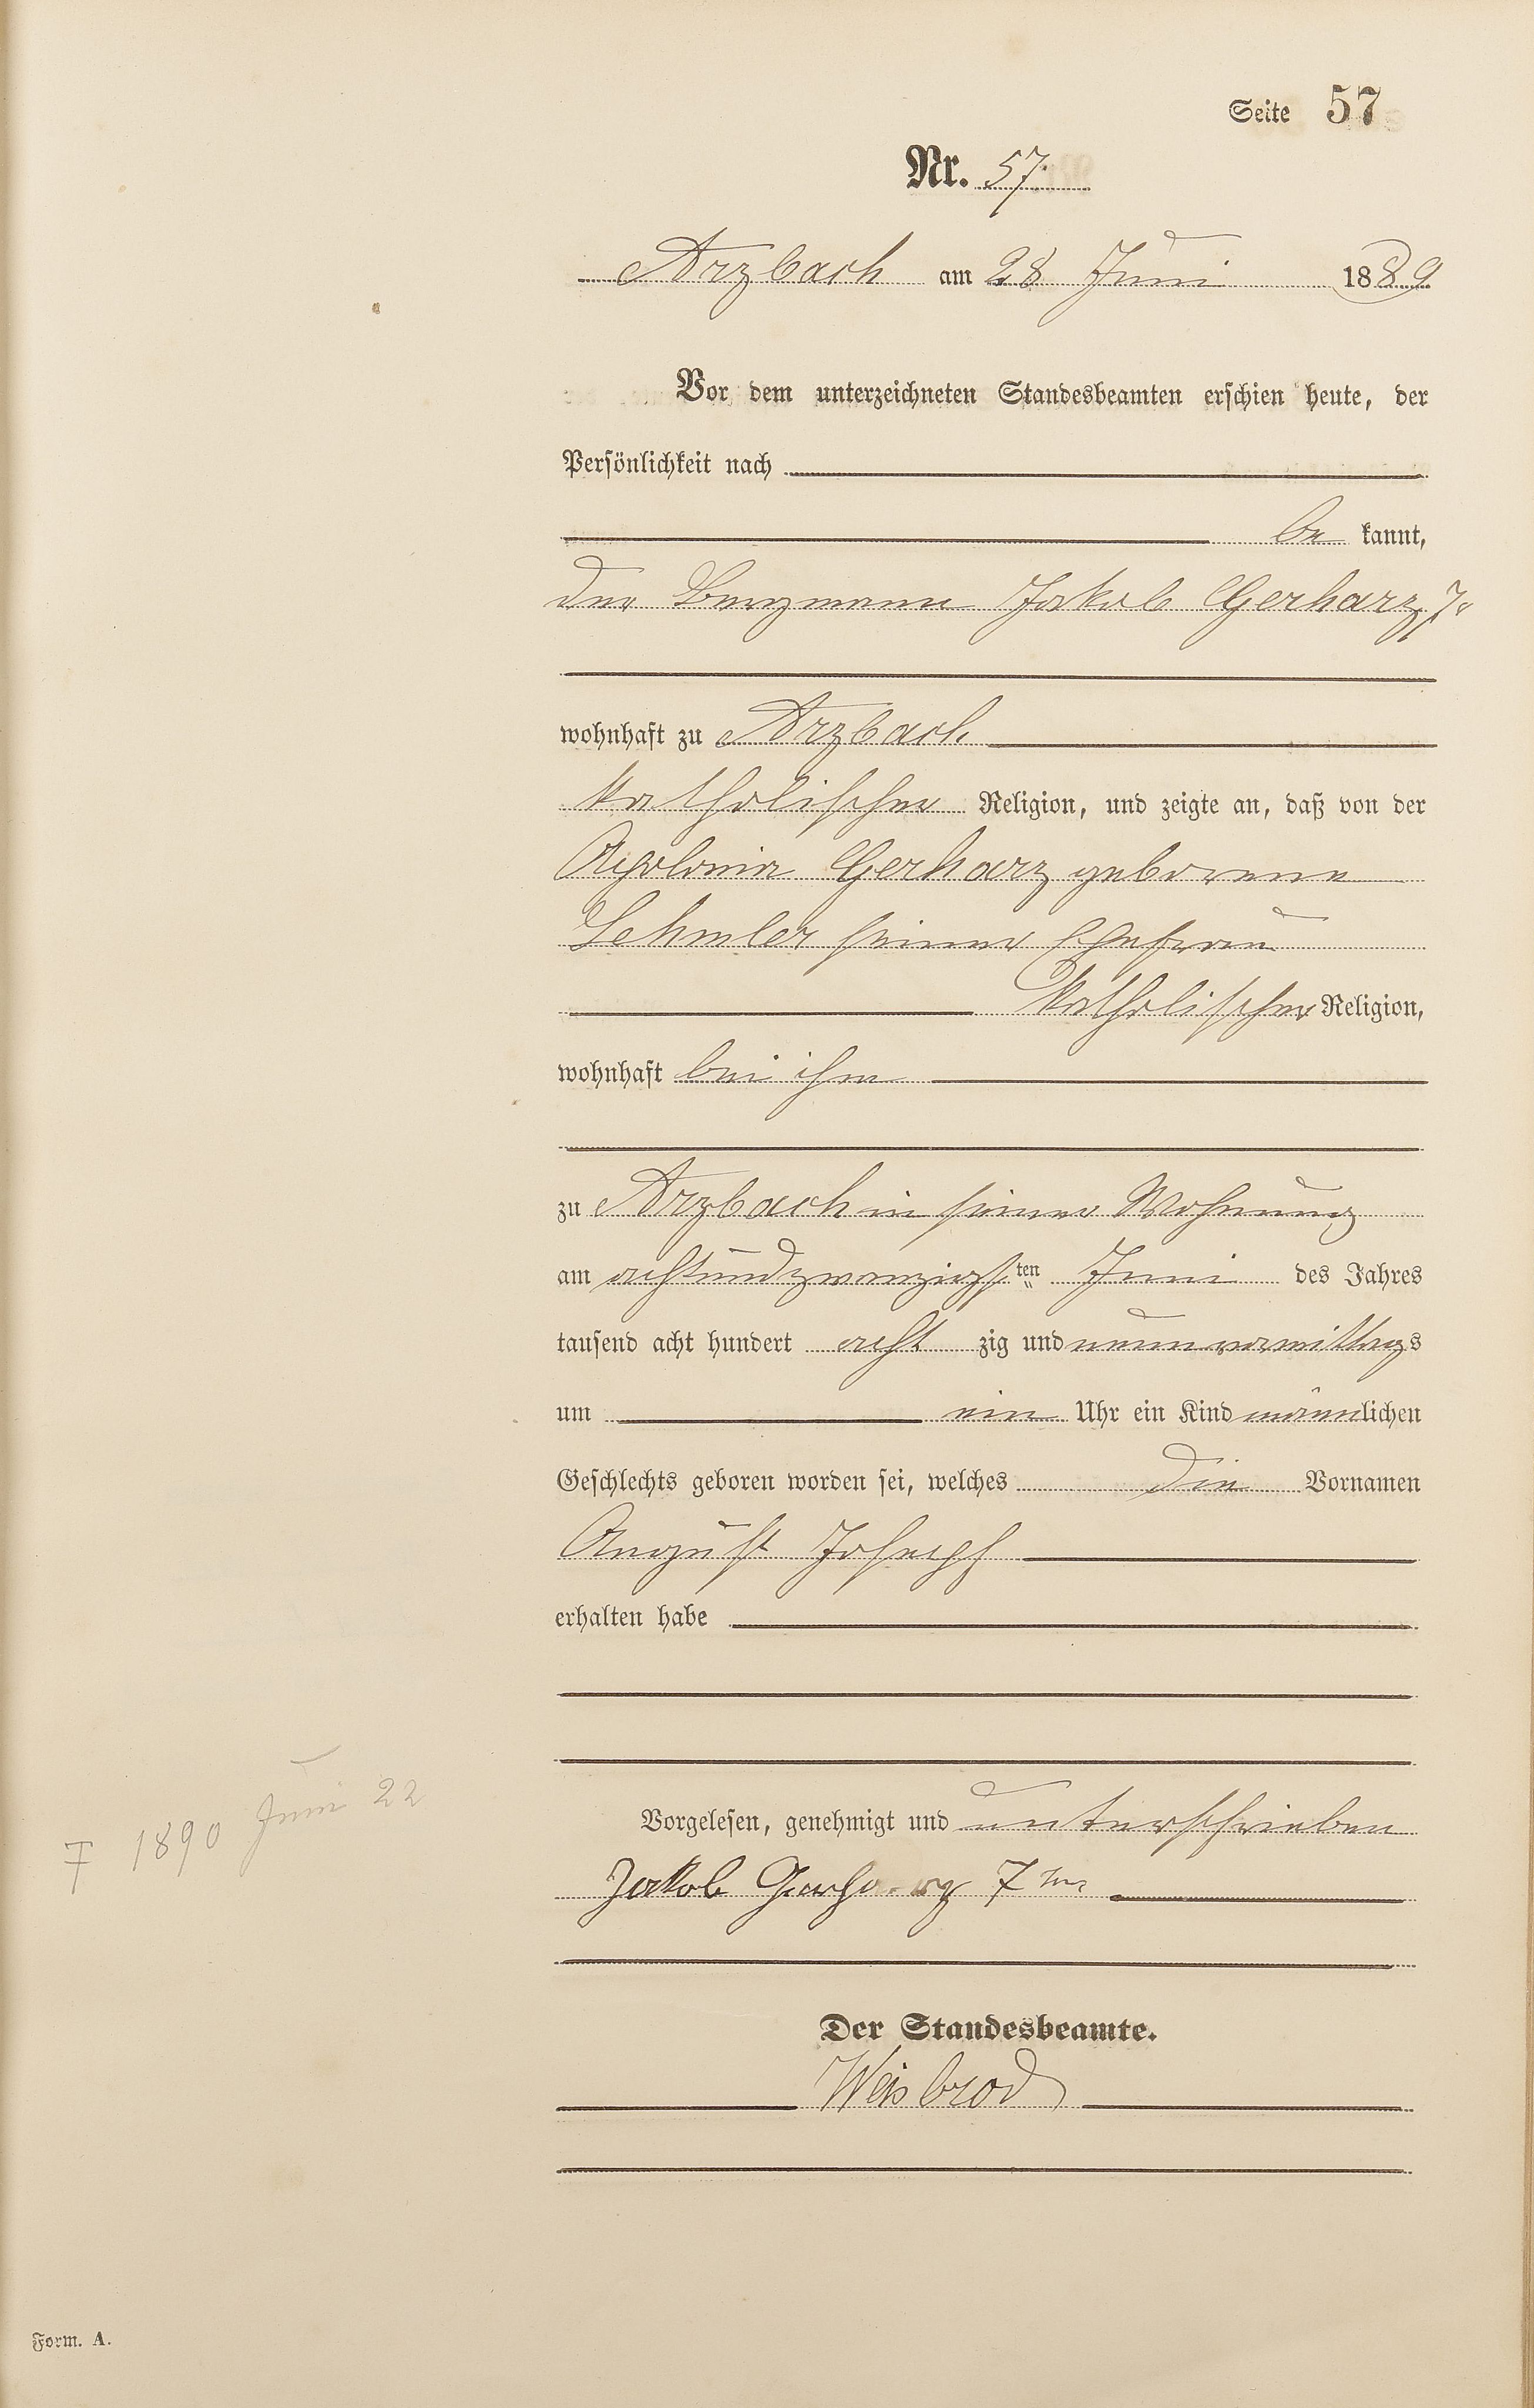 Seite 57
Nr. 57.
Arzbach am 28 Juni 1889
Vor dem unterzeichneten Standesbeamten erschien heute, der
Persönlichkeit nach
be kannt,
der Bergmann Jakob Gerharz 7r
wohnhaft zu Arzbach
katholischer Religion, und zeigte an, daß von der
Apolonia Gerharz geborene
Lehmler seiner Ehefrau
katholischer Religion,
wohnhaft bei ihm
zu Arzbach in seiner Wohnung
am achtundzwanzigsten Juni des Jahres
tausend acht hundert acht zig und neun vormittags
um ein Uhr ein Kind männlichen
Geschlechts geboren worden sei, welches die Vornamen
August Joseph
erhalten habe
Vorgelesen, genehmigt und unterschrieben
Jakob Gerharz 7ter
Der Standesbeamte.
Weisbrod
† 1890 Juni 22
Form. A.